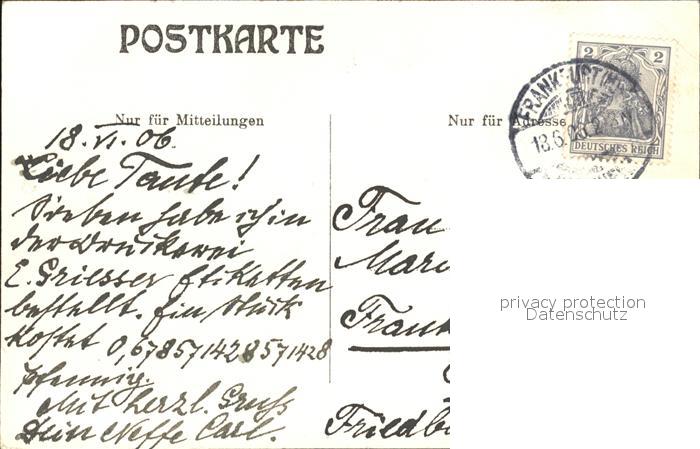 POSTKARTE
Nur für Mitteilungen
Nur für Adresse
2 2
DEUTSCHES REICH
FRANKFURT
13.6.06.
18.VI.06.
Liebe Tante!
Soeben habe ich in
der Druckerei
E. Griesser Etiketten
bestellt. Ein Stück
kostet 0,678571428571428
Pfennig.
Mit herzl. Gruß
Dein Neffe Carl.
Frau
Mari
Frank
Friedb
privacy protection
Datenschutz